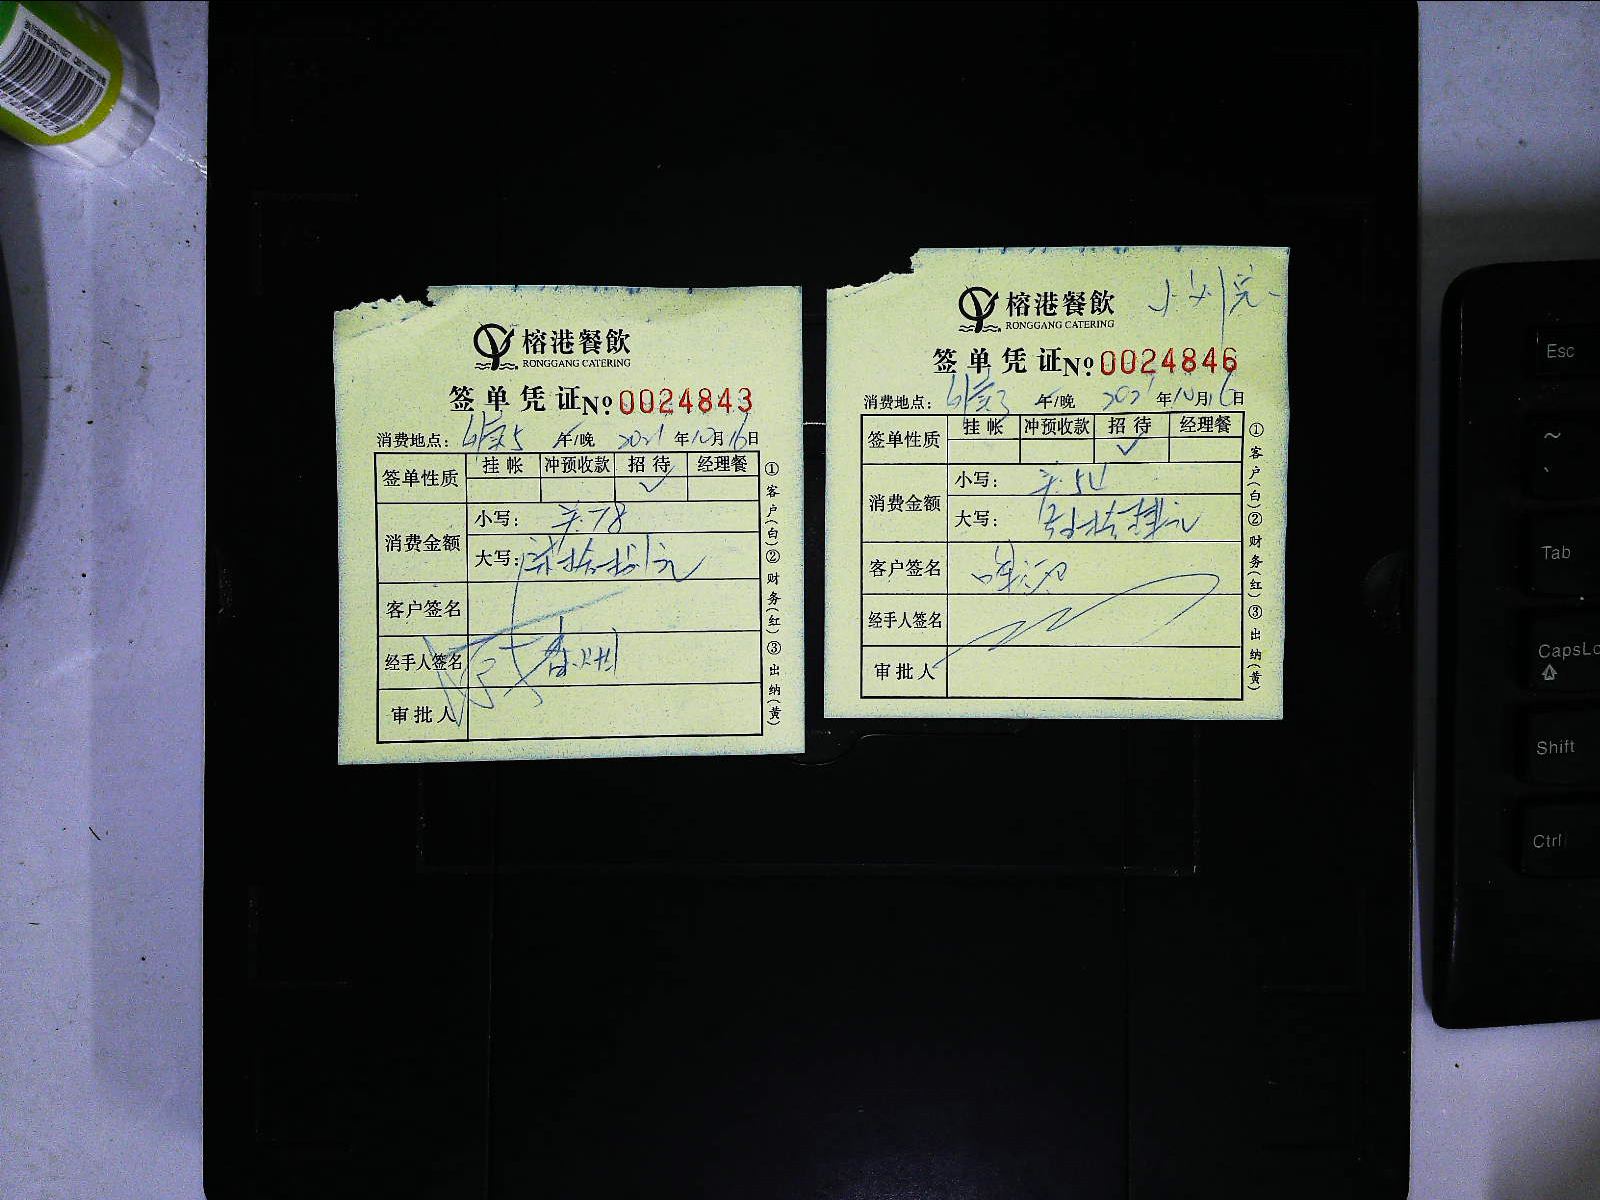 榕港餐飲
RONGGANG CATERING
签单凭证 № 0024843
消费地点: 5 午/晚 2021年10月16日
签单性质 挂帐 冲预收款 招待 经理餐
✓
消费金额
小写: 78
大写: 柒拾捌元
客户签名
经手人签名
审批人
①客户(白)②财务(红)③出纳(黄)
榕港餐飲
RONGGANG CATERING
小刘
签单凭证 № 0024846
消费地点: 3 午/晚 2021年10月16日
签单性质 挂帐 冲预收款 招待 经理餐
✓
消费金额
小写: 54
大写: 伍拾肆元
客户签名
经手人签名
审批人
①客户(白)②财务(红)③出纳(黄)
Esc
~
`
Tab
CapsLo
Shift
Ctrl